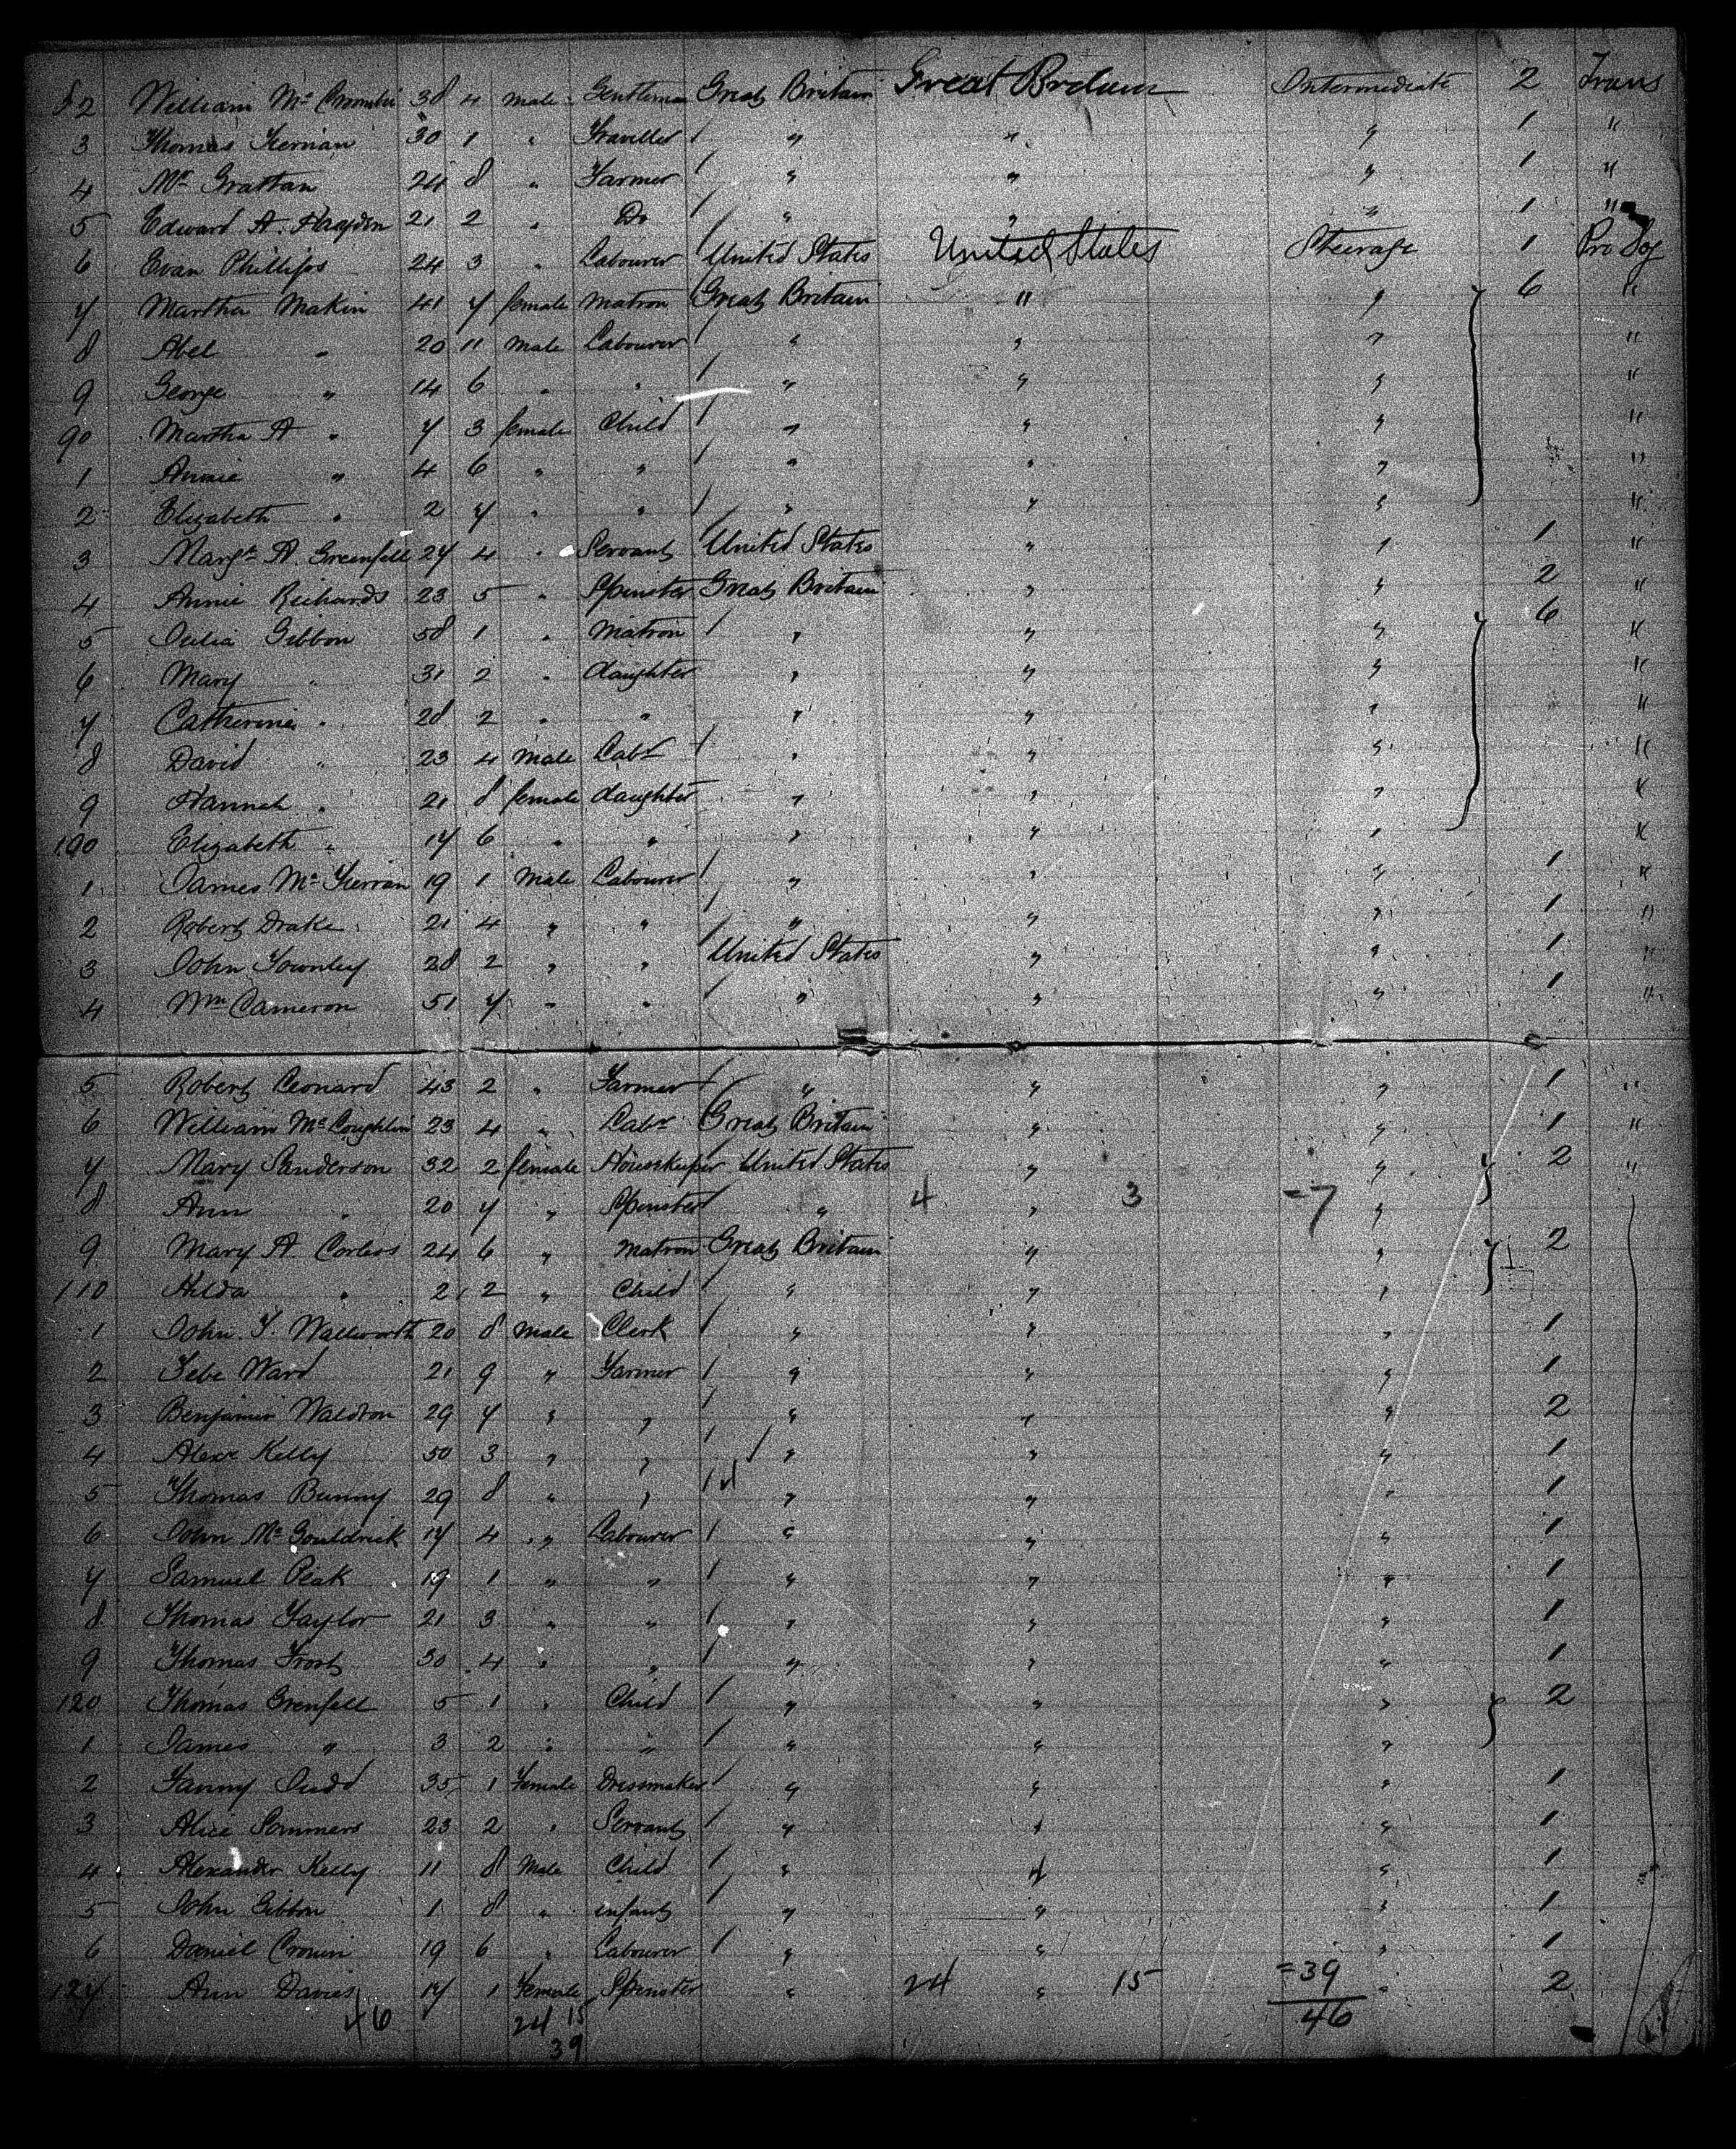 82 William McCrombie 38 4 male Gentleman Great Britain Great Britain Intermediate 2 Trans
3 Thomas Kernan 30 1 " Traveller / " " " 1 "
4 Mr Grattan 24 8 " Farmer / " " " 1 "
5 Edward A. Hayden 21 2 " Do / " " " 1 "
6 Evan Phillips 24 3 " Labourer United States United States Steerage 1 Pro Sog
7 Martha Makin 41 7 female matron Great Britain " " 6 "
8 Abel " 20 11 male Labourer / " " " "
9 George " 14 6 " " / " " " "
90 Martha A " 7 3 female Child / " " " "
1 Annie " 4 6 " " / " " " "
2 Elizabeth " 2 7 " " / " " " "
3 Margt A. Greenfell 27 4 " Servant United States " " 1 "
4 Annie Richards 23 5 " Spinster Great Britain " " 2 "
5 Julia Gibbon 58 1 " matron / " " " 6 "
6 Mary " 31 2 " daughter " " " "
7 Catherine " 28 2 " " " " " "
8 David " 23 4 male Labr / " " " "
9 Hannah " 21 8 female daughter " " " "
100 Elizabeth " 17 6 " " " " " "
1 James McKerran 19 1 male Labourer / " " " 1 "
2 Robert Drake 21 4 " " / " " " 1 "
3 John Townley 28 2 " " / United States " " 1 "
4 Wm Cameron 51 7 " " / " " " 1 "
5 Robert Leonard 43 2 " Farmer / " " " 1 "
6 William McCoughlin 23 4 " Labr Great Britain " " 1 "
7 Mary Sanderson 32 2 female Housekeeper United States " " 2 "
8 Ann " 20 7 " Spinster / " 4 " 3 =7 "
9 Mary A. Corless 24 6 " matron Great Britain " " 2
110 Hilda " 2 2 " Child / " " "
1 John T. Wallworth 20 8 male Clerk / " " " 1
2 Zebe Ward 21 9 " Farmer / " " " 1
3 Benjamin Waldron 29 7 " " / " " " 2
4 Alexr Kelly 50 3 " " / / " " " 1
5 Thomas Bunny 29 8 " " / " " " 1
6 John McGouldrick 17 4 " Labourer / " " " 1
7 Samuel Peak 19 1 " " / " " " 1
8 Thomas Taylor 21 3 " " / " " " 1
9 Thomas Frost 30 4 " " / " " " 1
120 Thomas Grenfell 5 1 " Child / " " " 2
1 James " 3 2 " " / " " "
2 Fanny Judd 35 1 Female Dressmaker / " " " 1
3 Alice Sommers 23 2 " Servant / " " " 1
4 Alexander Kelly 11 8 Male Child / " " " 1
5 John Gibbon 1 8 " infant / " " " 1
6 Daniel Cronin 19 6 " Labourer / " " " 1
127 Ann Davies 17 1 Female Spinster " 24 " 15 =39 " 2
46 24 15 46
39